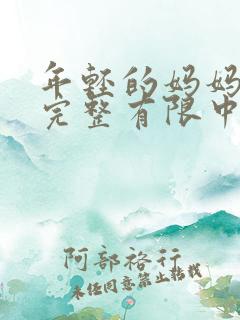 年轻的妈妈
完整有限中
阿部裕行
未经同意禁止转载